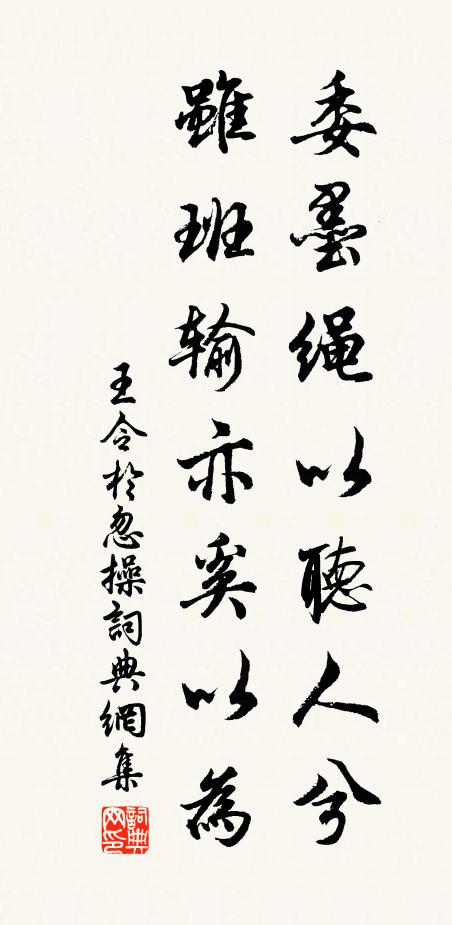 委墨繩以聽人兮
雖班輸亦奚以為
王令於忽操詞典網集
詞典网印